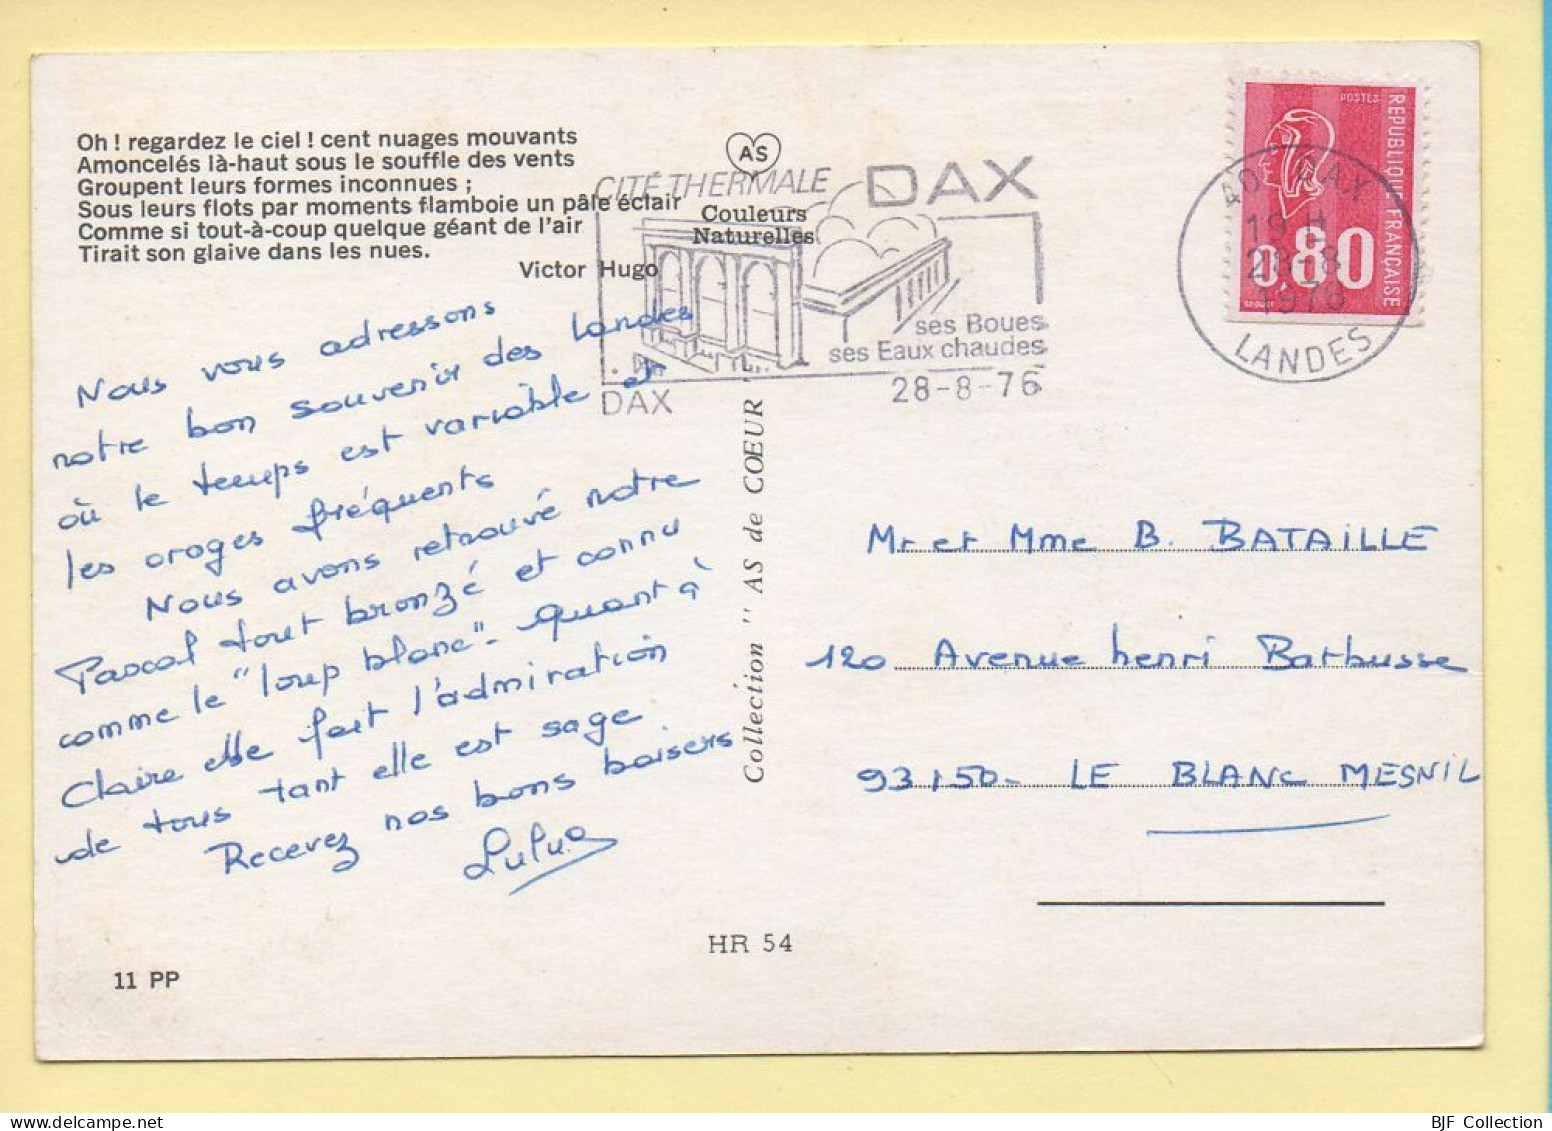 Oh ! regardez le ciel ! cent nuages mouvants
Amoncelés là-haut sous le souffle des vents
Groupent leurs formes inconnues ;
Sous leurs flots par moments flamboie un pâle éclair
Comme si tout-à-coup quelque géant de l'air
Tirait son glaive dans les nues.
Victor Hugo
Nous vous adressons
notre bon souvenir des Landes
où le temps est variable et
les orages fréquents
Nous avons retrouvé notre
Pascal tout bronzé et connu
comme le "loup blanc" - Quant à
Claire elle fait l'admiration
de tous tant elle est sage
Recevez nos bons baisers
Lulu
11 PP
AS
Couleurs
Naturelles
CITÉ THERMALE DAX
ses Boues
ses Eaux chaudes
DAX
28-8-76
Collection " AS de COEUR
HR 54
40 DAX
19 H
28-8
1976
LANDES
POSTES
REPUBLIQUE FRANÇAISE
0,80
Mr et Mme B. BATAILLE
120 Avenue henri Barbusse
93150 - LE BLANC MESNIL
BJF Collection